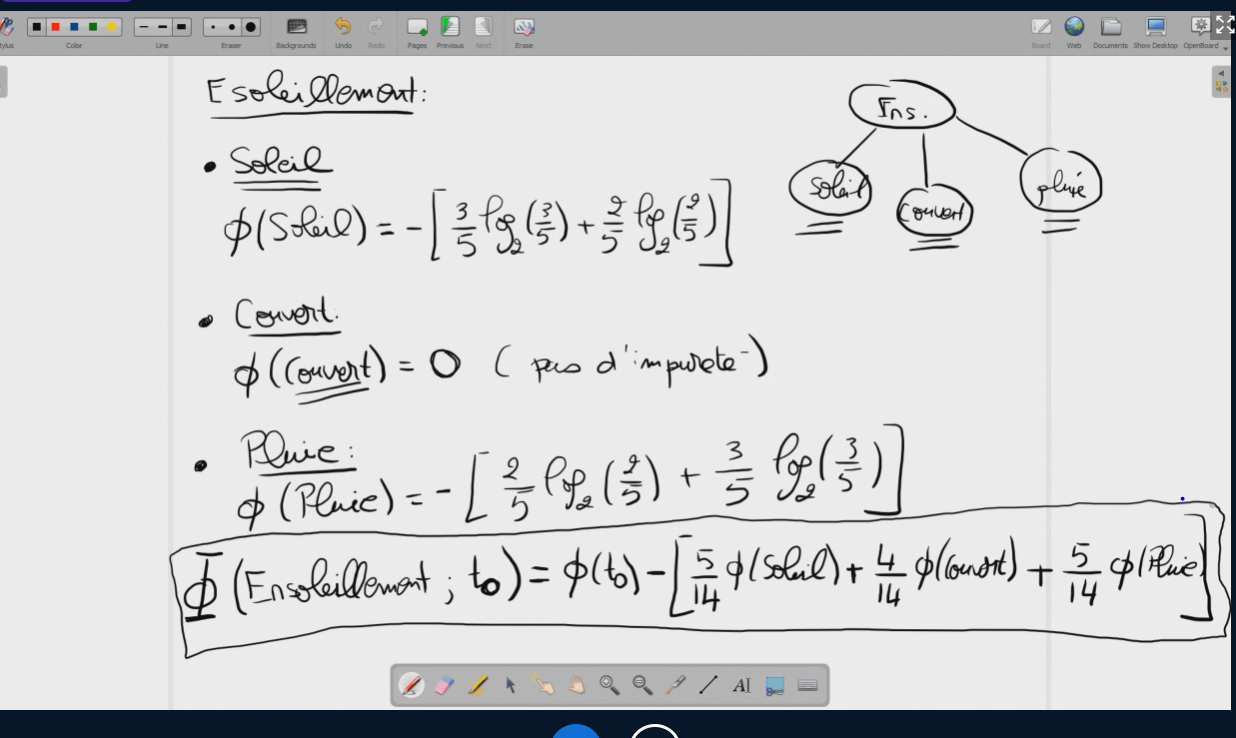 Stylus Color Line Eraser Backgrounds Undo Redo Pages Previous Next Erase Board Web Documents Show Desktop OpenBoard
Esoleillement:
Ens.
Soleil
Couvert
pluie
• Soleil
ϕ(Soleil) = -[3/5 log₂(3/5) + 2/5 log₂(2/5)]
• Couvert.
ϕ(Couvert) = 0 (pas d'impureté)
• Pluie:
ϕ(Pluie) = -[2/5 log₂(2/5) + 3/5 log₂(3/5)]
Φ(Ensoleillement; t₀) = ϕ(t₀) - [5/14 ϕ(Soleil) + 4/14 ϕ(Couvert) + 5/14 ϕ(Pluie)]
AI